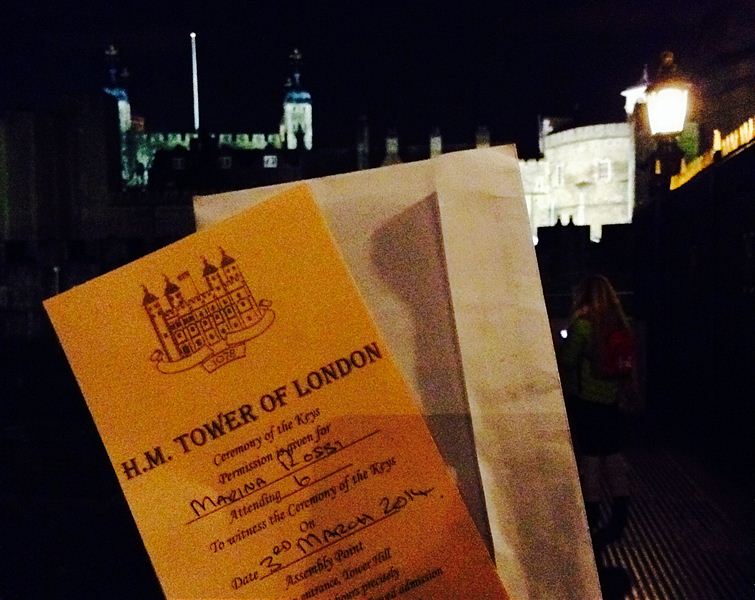 1078
H.M. TOWER OF LONDON
Ceremony of the Keys
Permission is given for
MARINA ROSSI
Attending 6
To witness the Ceremony of the Keys
On
Date 3RD MARCH 2014.
Assembly Point
entrance, Tower Hill
hours precisely
admission